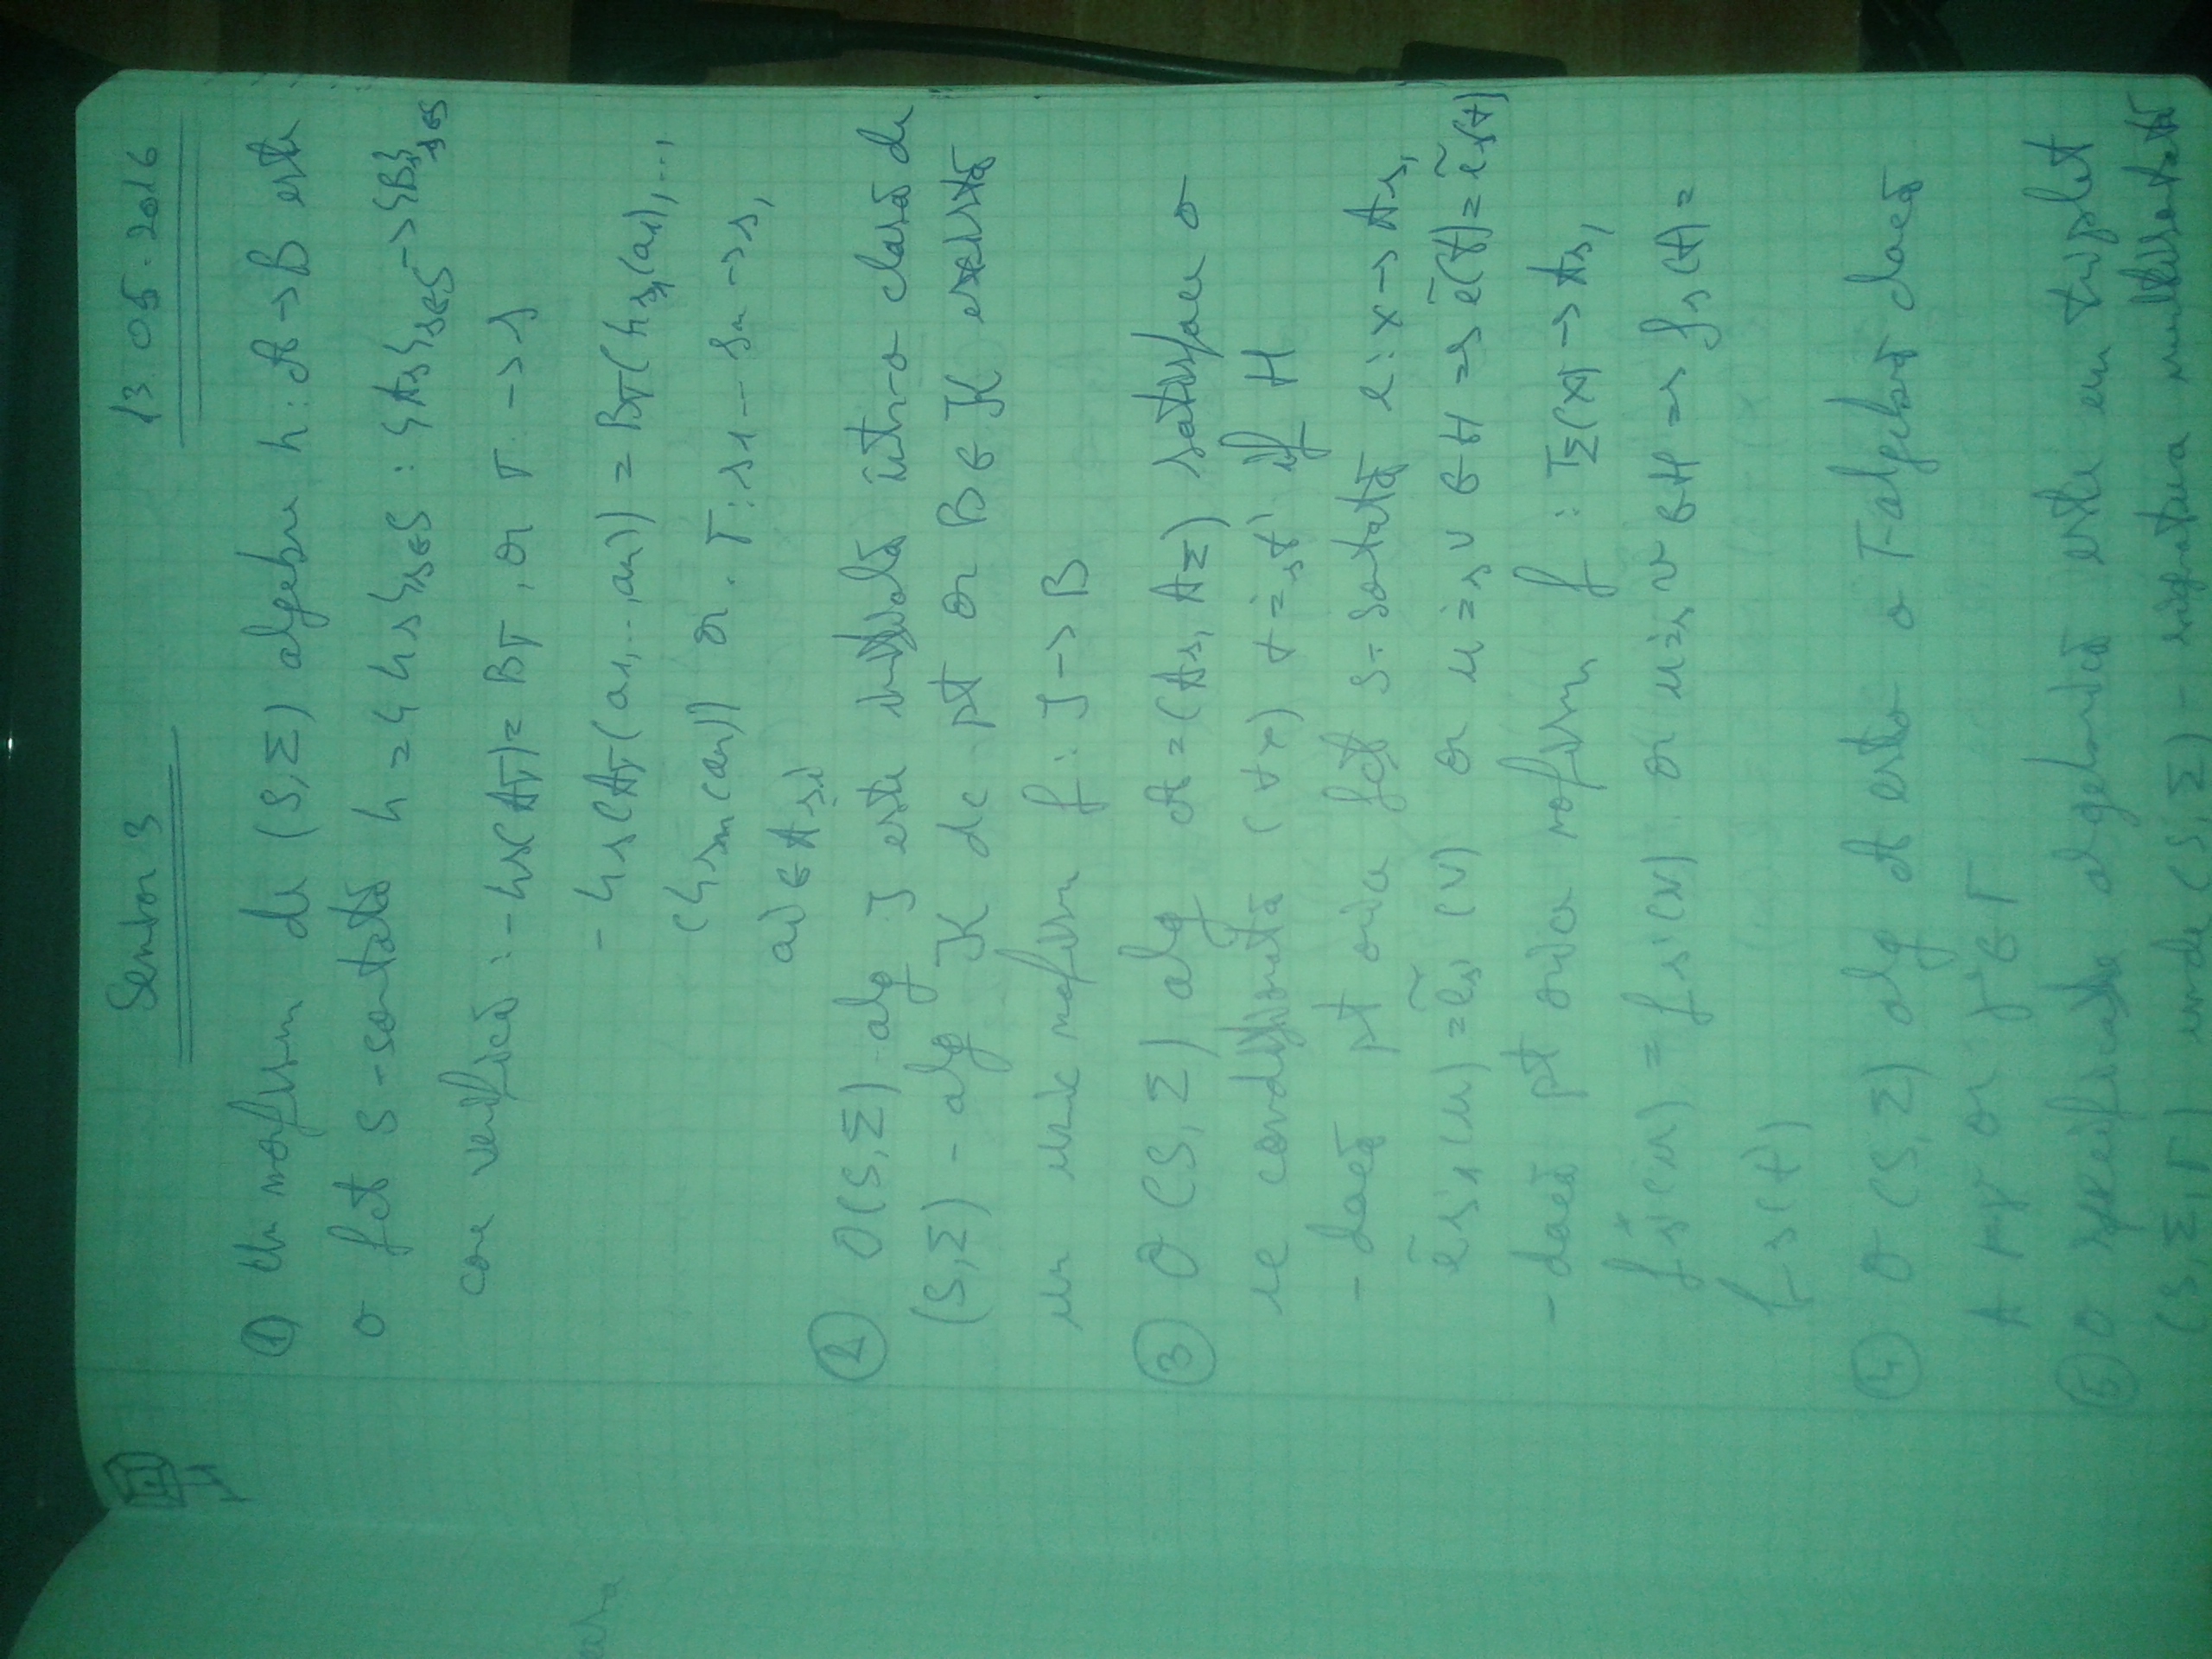 Seminar 3 13.05.2016
① Un morfism de (S,Σ) algebre h: A→B este
o fct S-sortată h={hs}s∈S : {As}s∈S→{Bs}s∈S
care verifică: - hs(Aσ)= Bσ, or σ: →s
- hs(Aσ(a1,..,an)) = Bσ(hs1(a1),...,
(hsn(an)) or. σ: s1 – sn →s,
ai∈Asi
② O(S,Σ) alg I este inițială într-o clasă de
(S,Σ) - alg K dc pt or B∈K există
un unic morfism f: I→B
③ O (S,Σ) alg A=(As, AΣ) satisface o
ec condiționată (∀x) t≐s t' if H
- dacă pt orice fct S-sortată e: x→As,
ẽs'(u) = ẽs'(v) or u≐s v ∈H ⇒ ẽ(t)= ẽs(t)
- dacă pt orice morfism f : TΣ(x) → As,
fs'(u) = fs'(v) or u≐s v ∈H ⇒ fs(t) =
fs(t')
④ O (S,Σ) alg A este o Γ-algebră dacă
A ⊨γ or γ∈Γ
⑤ O specificație algebrică este un triplet
(S,Σ,Γ) unde (S,Σ) - signatura multisortată